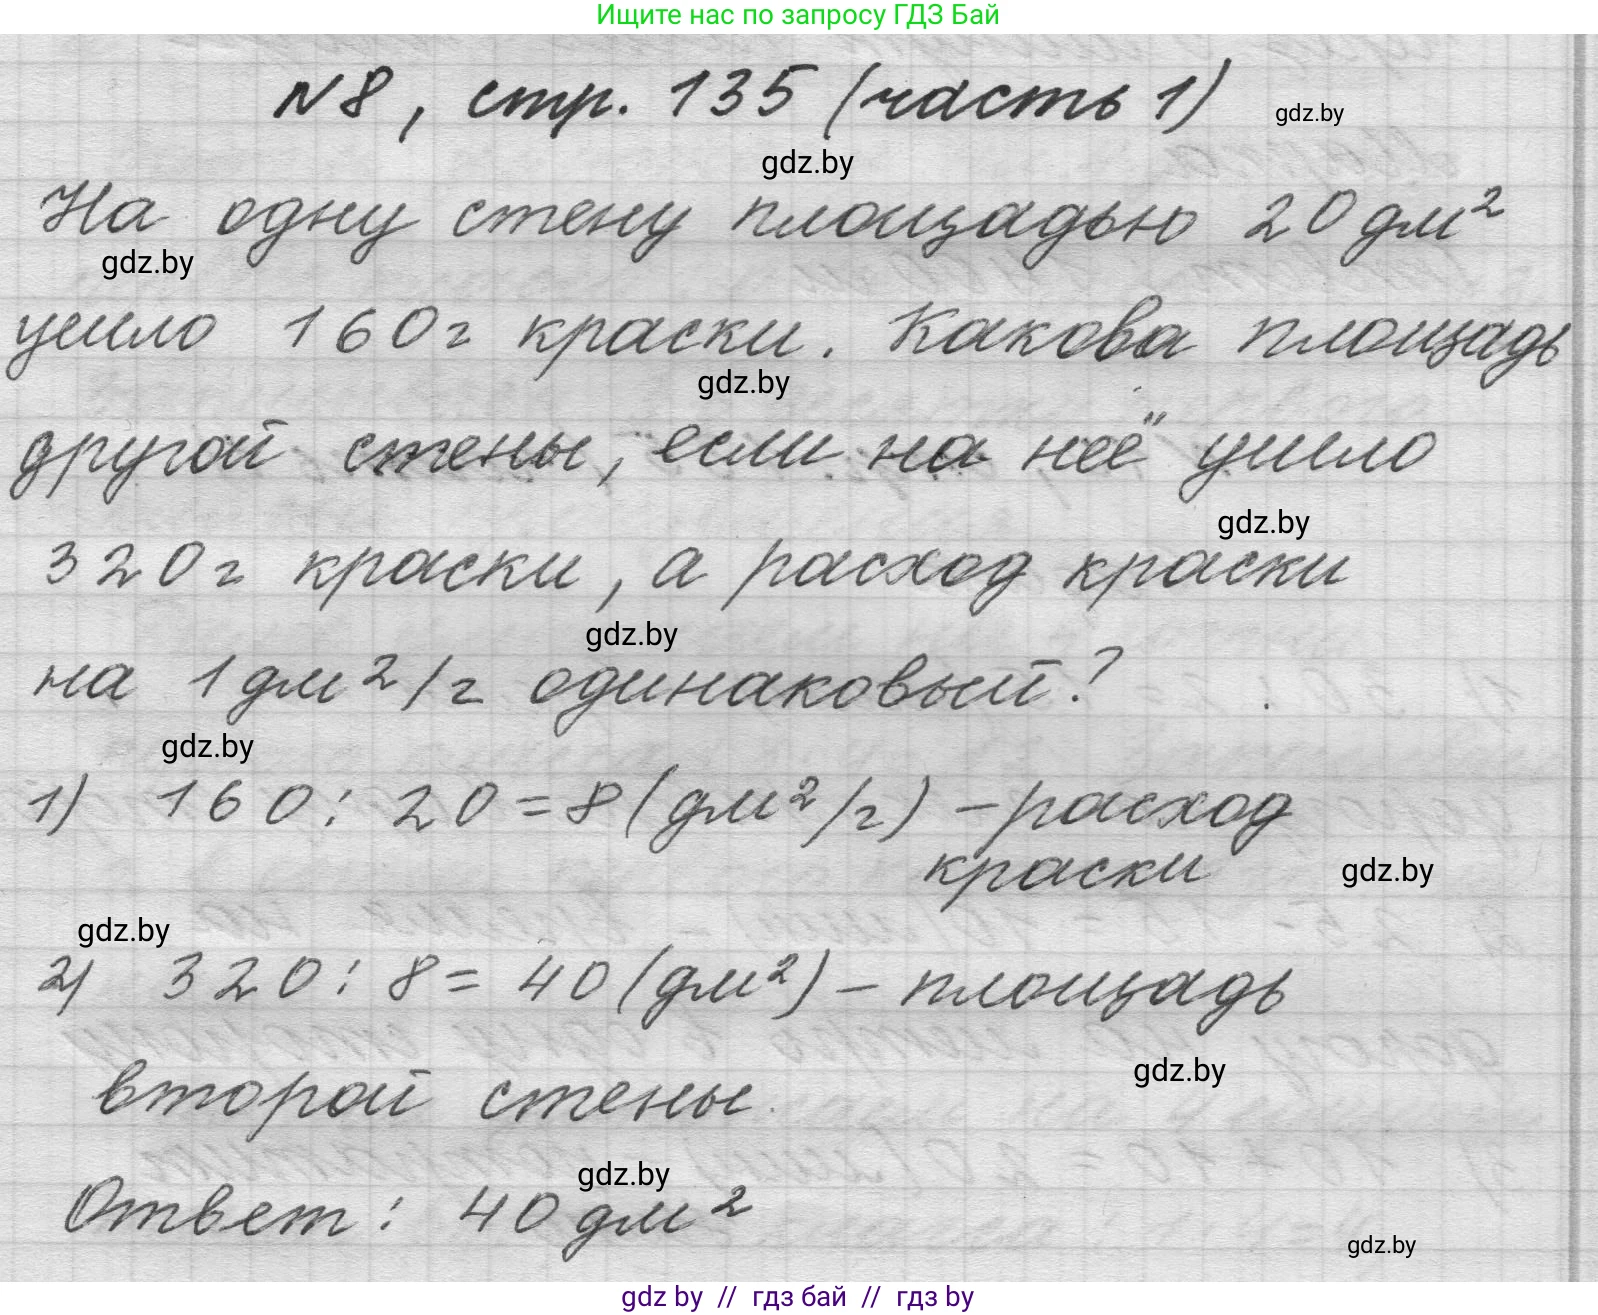 Ищите нас по запросу ГДЗ Бай
№8, стр. 135 (часть 1)
gdz.by
gdz.by
На одну стену площадью 20 дм²
gdz.by
ушло 160г краски. Какова площадь
gdz.by
другой стены, если на неё ушло
gdz.by
320г краски, а расход краски
gdz.by
на 1дм²/г одинаковый?
gdz.by
1) 160 : 20 = 8 (дм²/г) – расход
краски
gdz.by
gdz.by
2) 320 : 8 = 40 (дм²) – площадь
gdz.by
второй стены.
gdz.by
Ответ: 40 дм²
gdz.by
gdz by // гдз бай // гдз by